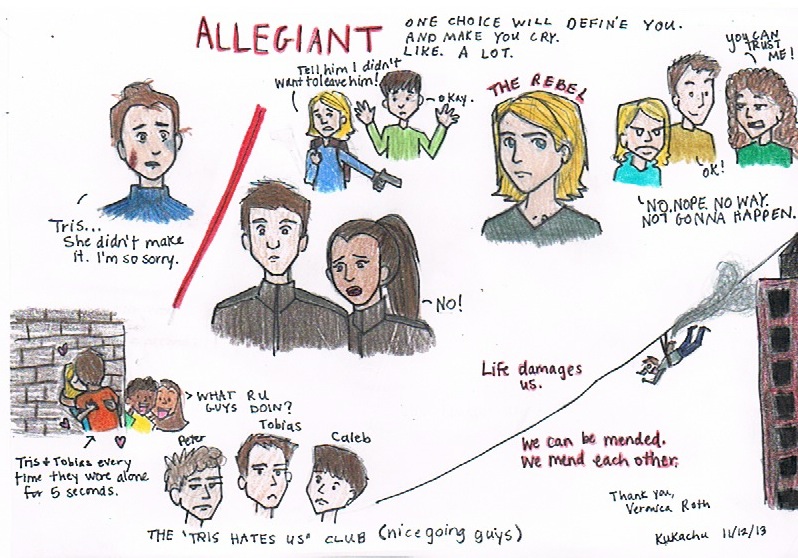 ALLEGIANT
ONE CHOICE WILL DEFINE YOU.
AND MAKE YOU CRY.
LIKE. A LOT.
Tell him I didn't
want to leave him!
okay.
THE REBEL
YOU CAN
TRUST
ME!
OK!
NO. NOPE. NO WAY.
NOT GONNA HAPPEN.
Tris...
She didn't make
it. I'm so sorry.
NO!
WHAT R U
GUYS DOIN?
Tris + Tobias every
time they were alone
for 5 seconds.
Peter
Tobias
Caleb
THE "TRIS HATES US" CLUB (nice going guys)
Life damages
us.
We can be mended.
We mend each other.
Thank you,
Veronica Roth
Kukachu 11/12/13